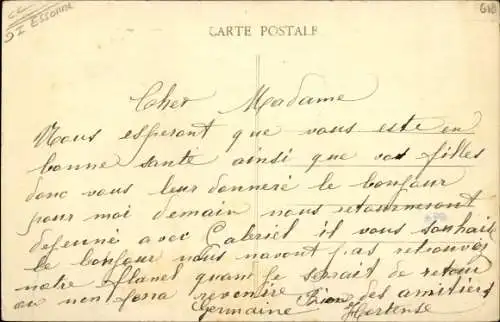 91 ESSONNE
CARTE POSTALE
Cher Madame
Nous esperont que vous este en
bonne santé ainsi que vos filles
donc vous leur donneré le bonjour
pour moi demain nous retourneront
dejenné avec Gabriel il vous souhait
le bonjour nous navont pas retrouvez
notre flanel quant je serait de retour
ou non fera revenire Rien des amitiers
Germaine Hortense